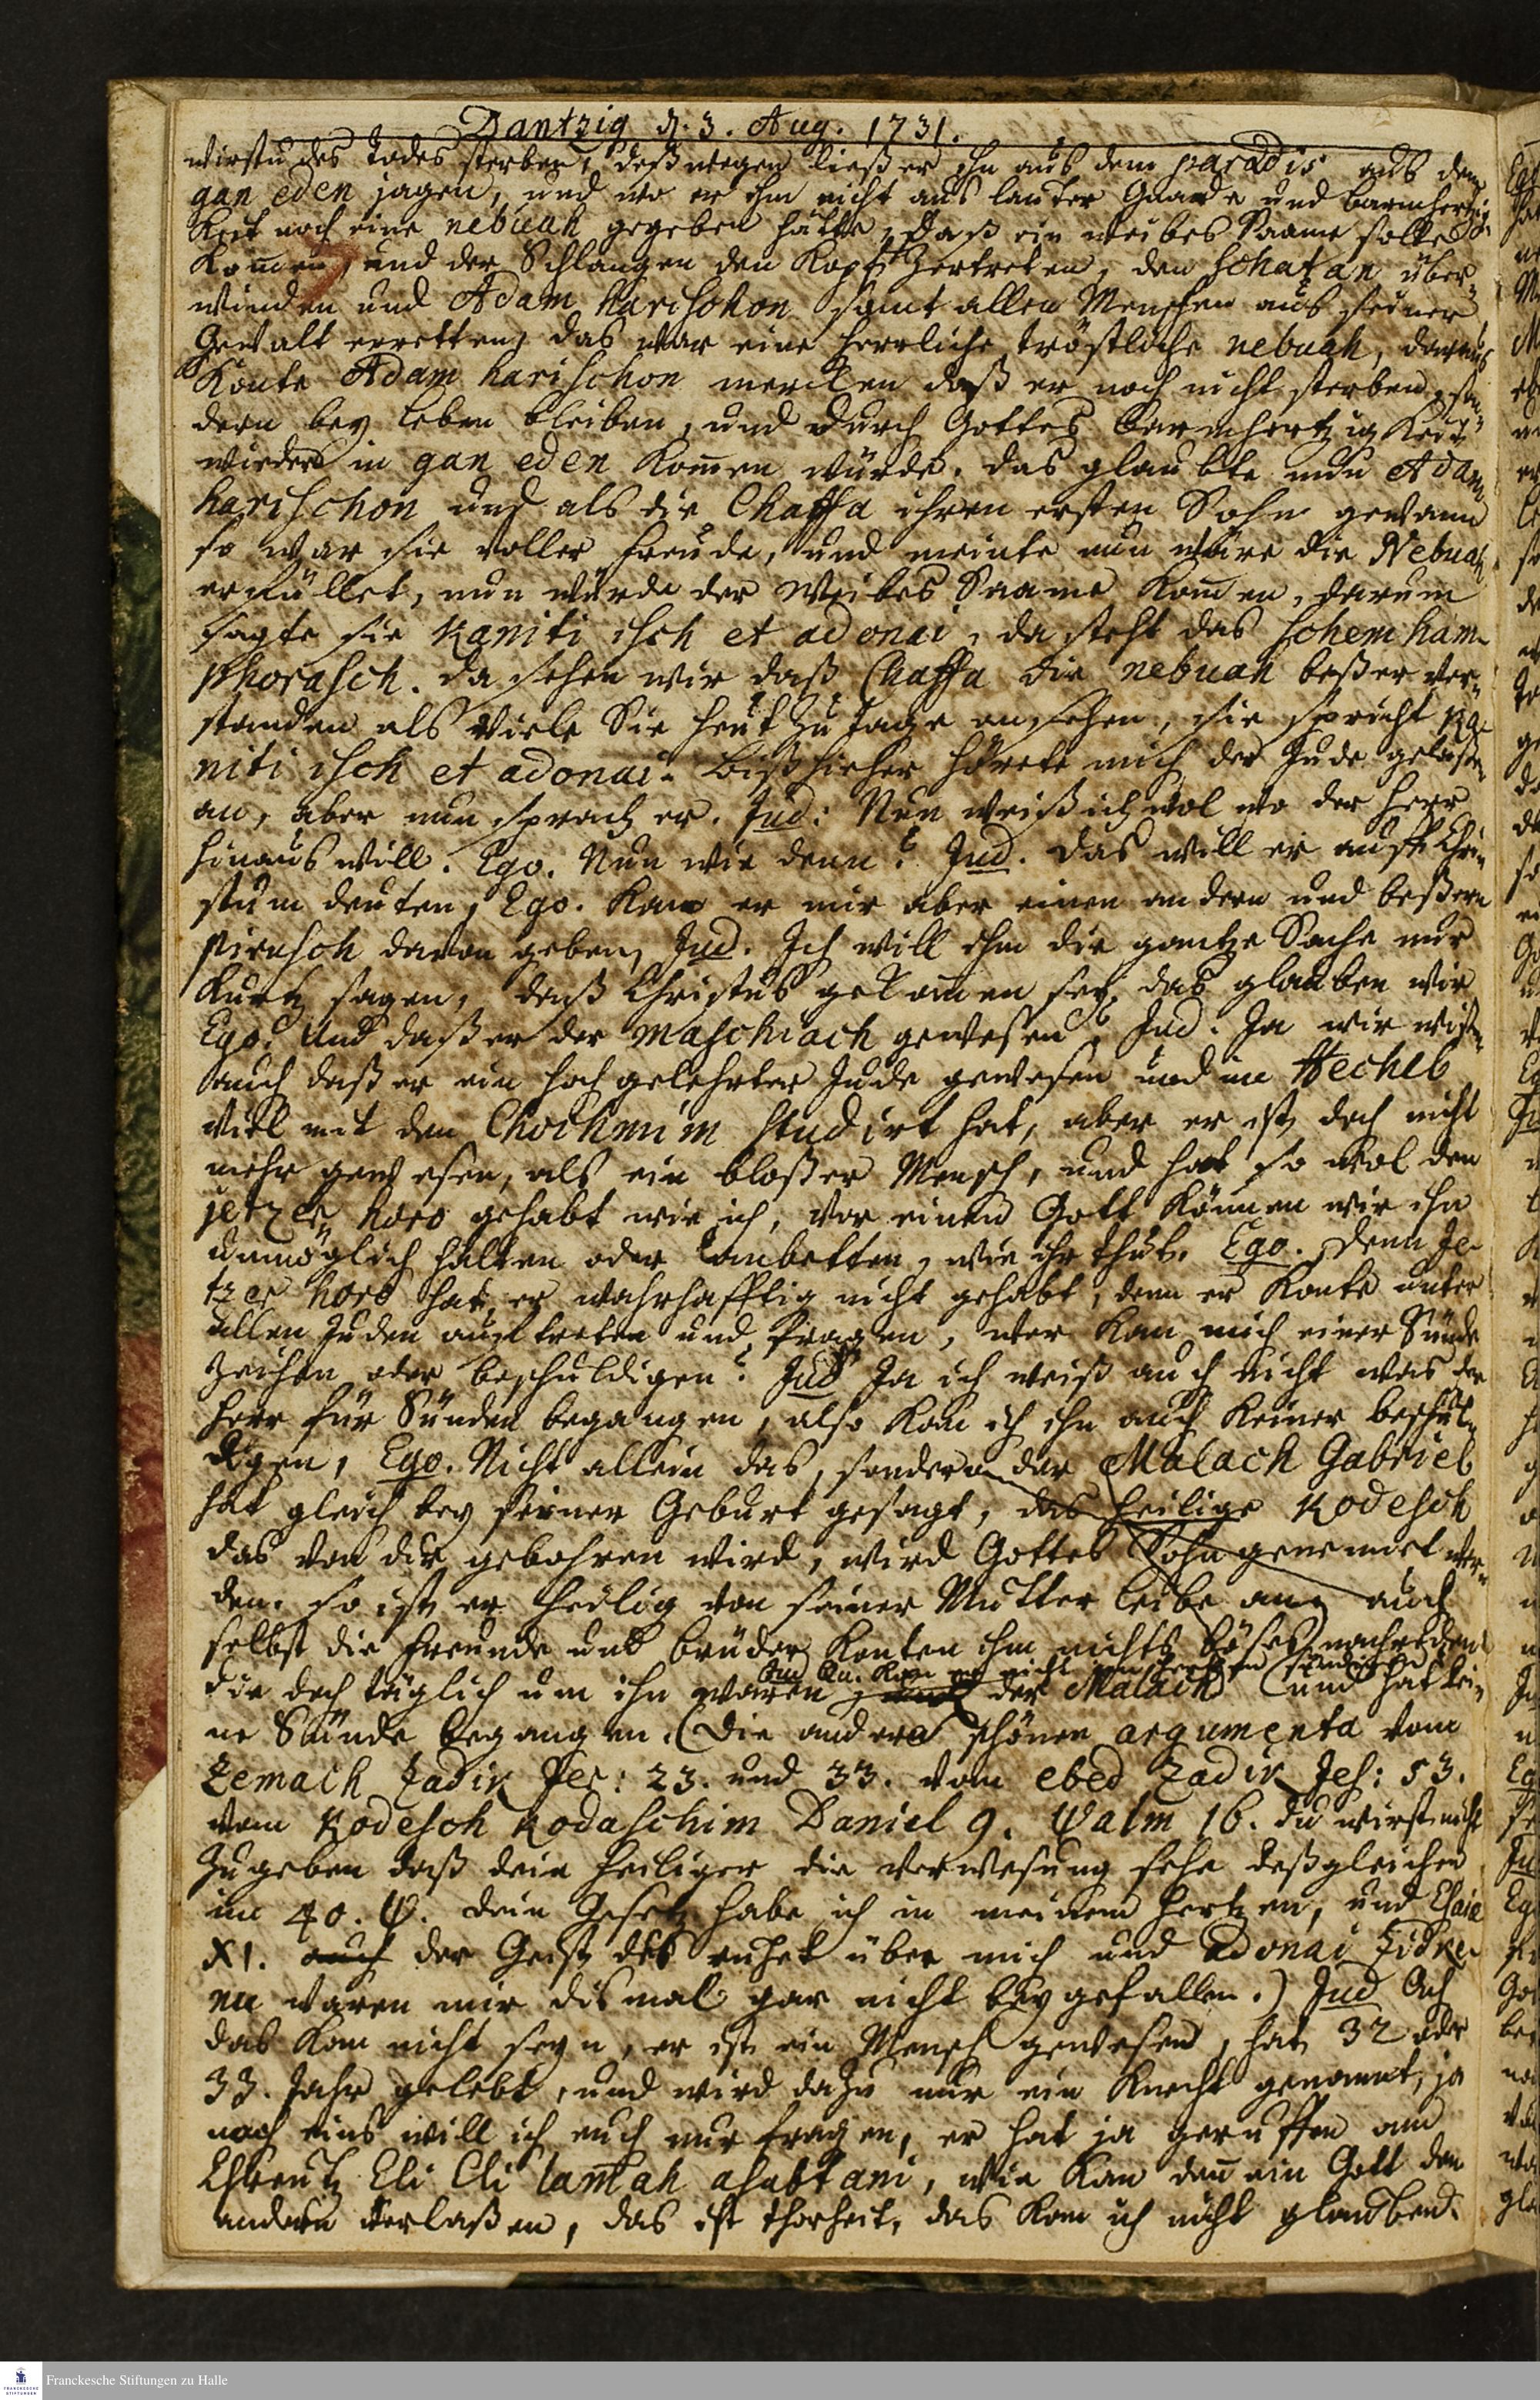 Dantzig d. 3. Aug. 1731.
wirstu des Todes sterben, deßwegen ließ er ihn aus dem paradis aus dem
gan eden jagen, und wo er ihm nicht aus lauter Gnade und barmhertzig-
keit noch eine nebuah gegeben hätte, daß ein weibes Saame solte
kom̄en, und der Schlangen den Kopf zertreten, den schatan über-
winden und Adam harischon samt allen Menschen aus seiner
Gewalt erretten, das war eine herrliche tröstliche nebuah, daraus
konte Adam harischon mercken daß er noch nicht sterben, son-
dern bey leben bleiben, und durch Gottes barmhertzigkeit
wieder in gan eden kom̄en würde. das glaubte nun Adam
harischon und als die Chaffa ihren ersten Sohn gewann
so war sie voller freude, und meinte nun wäre die Nebuah
erfüllet, nun würde der Weibes Saame kom̄en, darum
sagte sie Kaniti isch et adonai, da steht das schem ham-
phorasch. da sehen wir daß Chaffa die nebuah beßer ver-
standen als viele Sie heut zu tage ansehen, sie spricht ka-
niti isch et adonai. bißhieher hörete mich der Jude gelaßen
an, aber nun sprach er. Jud: Nun weiß ich wol wo der Herr
hinaus will. Ego. Nun wie denn? Jud. das will er auff Chri-
stum deuten, Ego. Kan er mir aber einen andern und beßern
pirusch davon geben, Jud. Ich will ihm die gantze Sache nur
kurtz sagen, daß Christus gekom̄en sey, das glauben wir
Ego. Und daß er der Maschiach gewesen? Jud. Ja wir wißen
auch daß er ein hochgelehrter Jude gewesen und im Hechel
viel mit den Chochmim studirt hat, aber er ist doch nicht
mehr gewesen, als ein bloßer Mensch, und hat so wol den
jetzer horo gehabt wie ich, vor einen Gott können wir ihn
unmöglich halten oder anbetten, wie ihr thut. Ego. Denn Je-
tzer horo hat er wahrhafftig nicht gehabt, denn er konte unter
allen Juden aufftreten und fragen, wer kan mich einer Sünde
zeihen oder beschuldigen? Jud Ja ich weiß auch nicht was der
Herr für Sünden begangen, also kan ich ihn auch keiner beschul-
digen, Ego. Nicht allein das, sondern der Malach Gabriel
hat gleich bey seiner Geburt gesagt, das heilige Kodesch
das von dir gebohren wird, wird Gottes Sohn genennet wer-
den. so ist er heilig von seiner Mutter leibe an, auch
selbst die freunde und brüder konten ihm nichts böses nachreden
Jud kan er nicht
die doch täglich um ihn waren, der Malach (und hat kei-
ne Sünde begangen. (Die andern schönen argumenta vom
Zemach Zadik Jer: 23. und 33. vom ebed Zadik Jes: 53.
vom Kodesch Kodaschim Daniel 9. Psalm 16. du wirst nicht
zugeben daß dein Heiliger die verwesung sehe deßgleichen
im 40. ψ. dein Gesetz habe ich in meinem Hertzen, und Esaie
XI. auch der Geist des ruhet über mich und adonai Zidke-
nu waren mir dismal gar nicht beygefallen.) Jud Ach
das kan nicht seyn, er ist ein Mensch gewesen, hat 32 oder
33. Jahr gelebt, und wird dazu nur ein Knecht genannt, ja
noch eins will ich euch nur fragen, er hat ja geruffen am
Chreutz Eli Eli lam̄ah asabtani, wie kan den̄ ein Gott den
andern verlaßen, das ist thorheit, das kan ich nicht glauben.
Franckesche Stiftungen zu Halle